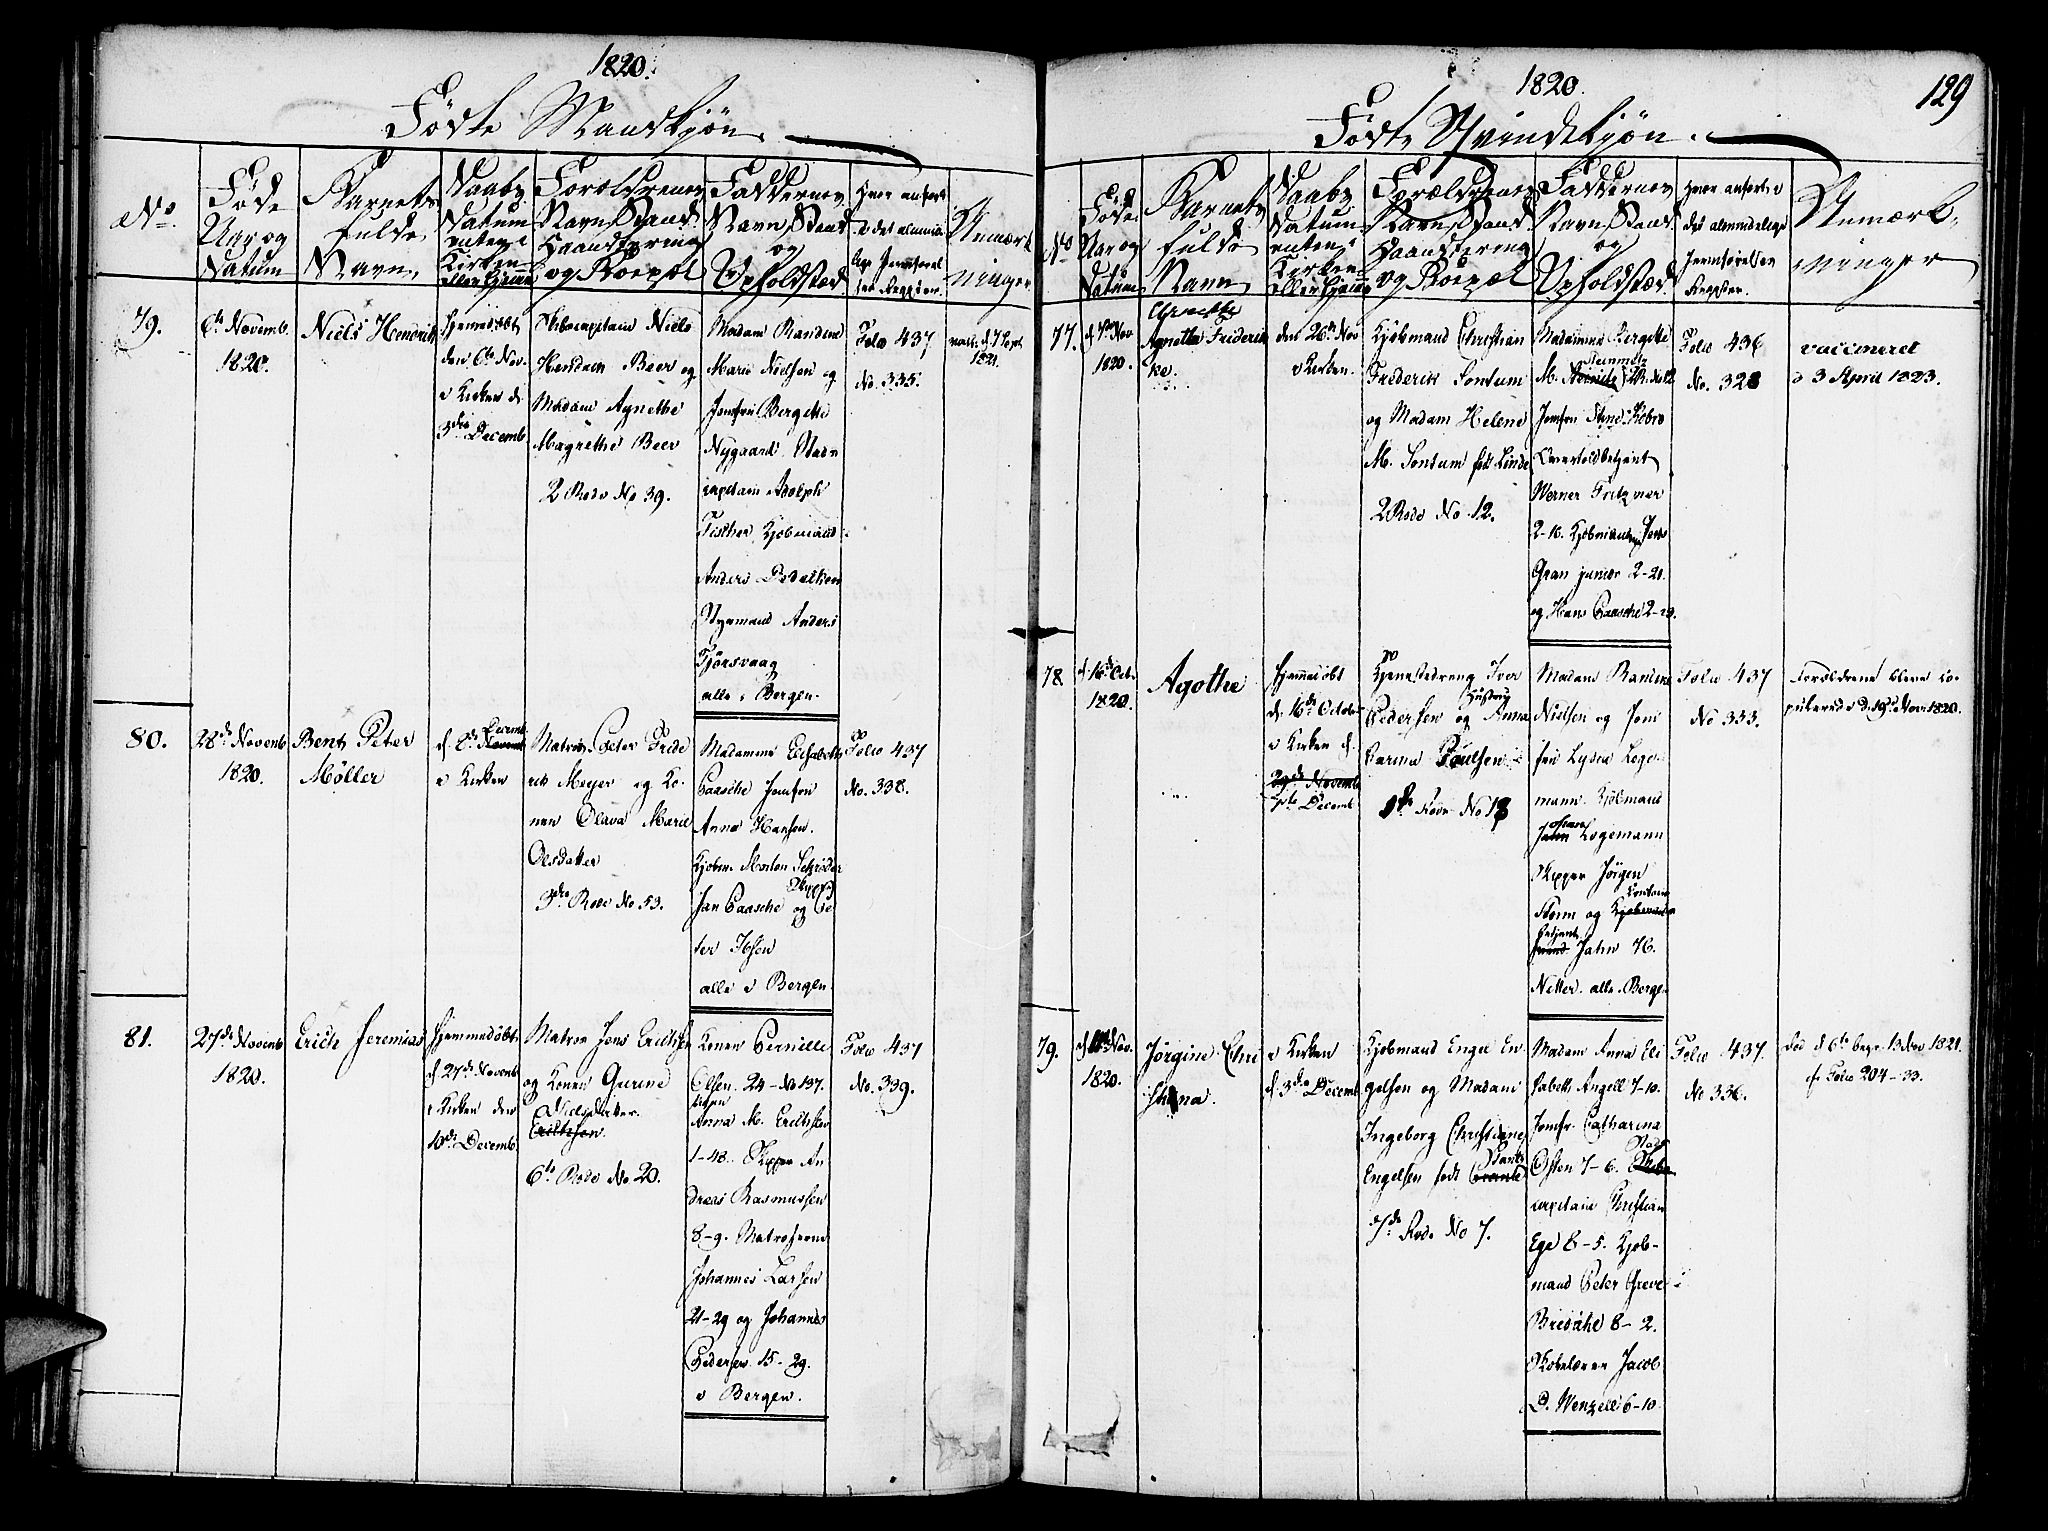 1820.
Fødte Mandkjøn.
No.
Føde
Aar og
Datum
Barnets
fulde
Navn.
Daabs
Datum
enten i
Kirken
eller hjemme
Forældrenes
Navn, Stand
Haandtering
og Boepæl
Faddernes
Navn, Stand
og
Opholdsted.
Hvor anført
i det almin
lige Jevnførel
ses Register.
Anmærk
ninger
79.
6te Novemb.
1820.
Niels Hendrich
hjemmedøbt
den 6te Nov.
i Kirken d.
3die Decemb.
Skibscapitain Niels
Hendrich Beer og
Madam Agnethe
Magrethe Beer
2 Rode No 39.
Madam Randine
Marie Nielsen og
Jomfru Bergethe
Nygaard. Stads
capitain Adolph
Fischer, Kjøbmand
Anders
Styrmand Anders
Fjørsvaag
alle i Bergen.
Folio 437
No. 335.
vacc. d. 7 Sept.
1821.
80.
28de Novemb
1820.
Bent Peter
Møller
Decemb.
d. 8de Novemb
i Kirken
Matros Peter Fride
rich Meyer og Ko
nen Olava Marie
Olsdatter
3die Rode No 53.
Madamme Elisabeth
Paasche Jomfru
Anna Hansen.
Kjøbm. Morten Schrøder
Skipper
Jan Paasche og Pe
ter Ibsen
alle i Bergen.
Folio 437
No. 338.
81.
27de Novemb
1820.
Erich Jeremias
hjemmedøbt
d. 27de Novemb
i Kirken den
10de Decemb.
Matros Jens Erichsen
og Konen Gurine
Nielsdatter.
Erichsen.
6te Rode No 20.
Konen Pernille
Olsen. 24-No 197.
Anna M. Erichsen
1-48. Skipper An
dreas Rasmussen
8-9. Matroserne
Johannes Larsen
21-29 og Johannes
Pedersen. 15-29.
i Bergen.
Folio 437
No. 339.
1820.
129
Fødte Qvindekjøn.
No
Føde
Aar og
Datum
Barnets
fulde
Navn
Daabs
Datum
enten i
Kirken
eller hjemme
Forældrenes
Navn, Stand
Haandtering
og Boepæl
Faddernes
Navn, Stand
og
Opholdsted.
Hvor anført i
det almindelige
Jevnførelses
Register.
Anmærk-
ninger
77.
d. 7de Nov
1820.
Agnetha Friderik
ke.
den 26de Nov
i Kirken.
Kjøbmand Christian
Frederik Sontum
og Madam Helene
M. Sontum født Linde
2 Rode No 12.
Madamme Bergethe
Steinmetz
Jomfru
Overtoldbetjent
Werner Fritzner
2-16. Kjøbmand Jens
Gran junior 2-21.
og Hans Paasche 2-29.
Folio 436
No. 328
vaccineret
d 3 April 1823.
78
d. 16de Octb.
1820.
Agothe
hjemmedøbt
d. 16de Octob
i Kirken d.
29de Novemb
7de Decemb.
Tjenestedreng Iver
Hustrue
Pedersen og Anna
Carina Poulsen
Rode No 18
Madam Randine
Nielsen og Jom
fru Lydia Loge
mann. Kjøbmand
Jahn Logemann
Skipper Jørgen
Contoir
Storm og Kjøbmand
betjent
Jahn
Netter. alle i Bergen
Folio 437
No 333.
Forældrene bleve co
pulerede d. 19de Nov. 1820.
79.
Nov.
1820.
Jørgine Chri
stiana.
i Kirken
d. 3die Decemb
Kjøbmand Engel En
gelsen og Madam
Ingeborg Christiane
Engelsen født
7de Rode No 7.
Madam Anna Eli
sabeth Angell 7-10.
Jomfr. Catharina
Stads
Osten 7-6. Skibs
capitain Christian
Ege 8-5. Kjøb-
mand Peter Greve
Bredahl 8-2.
Skolelærer Jacob
D. Wenzell 6-10
Folio 437.
No 336.
død d 6te begr. 13 Nov 1821.
cfr Folio 204-33.